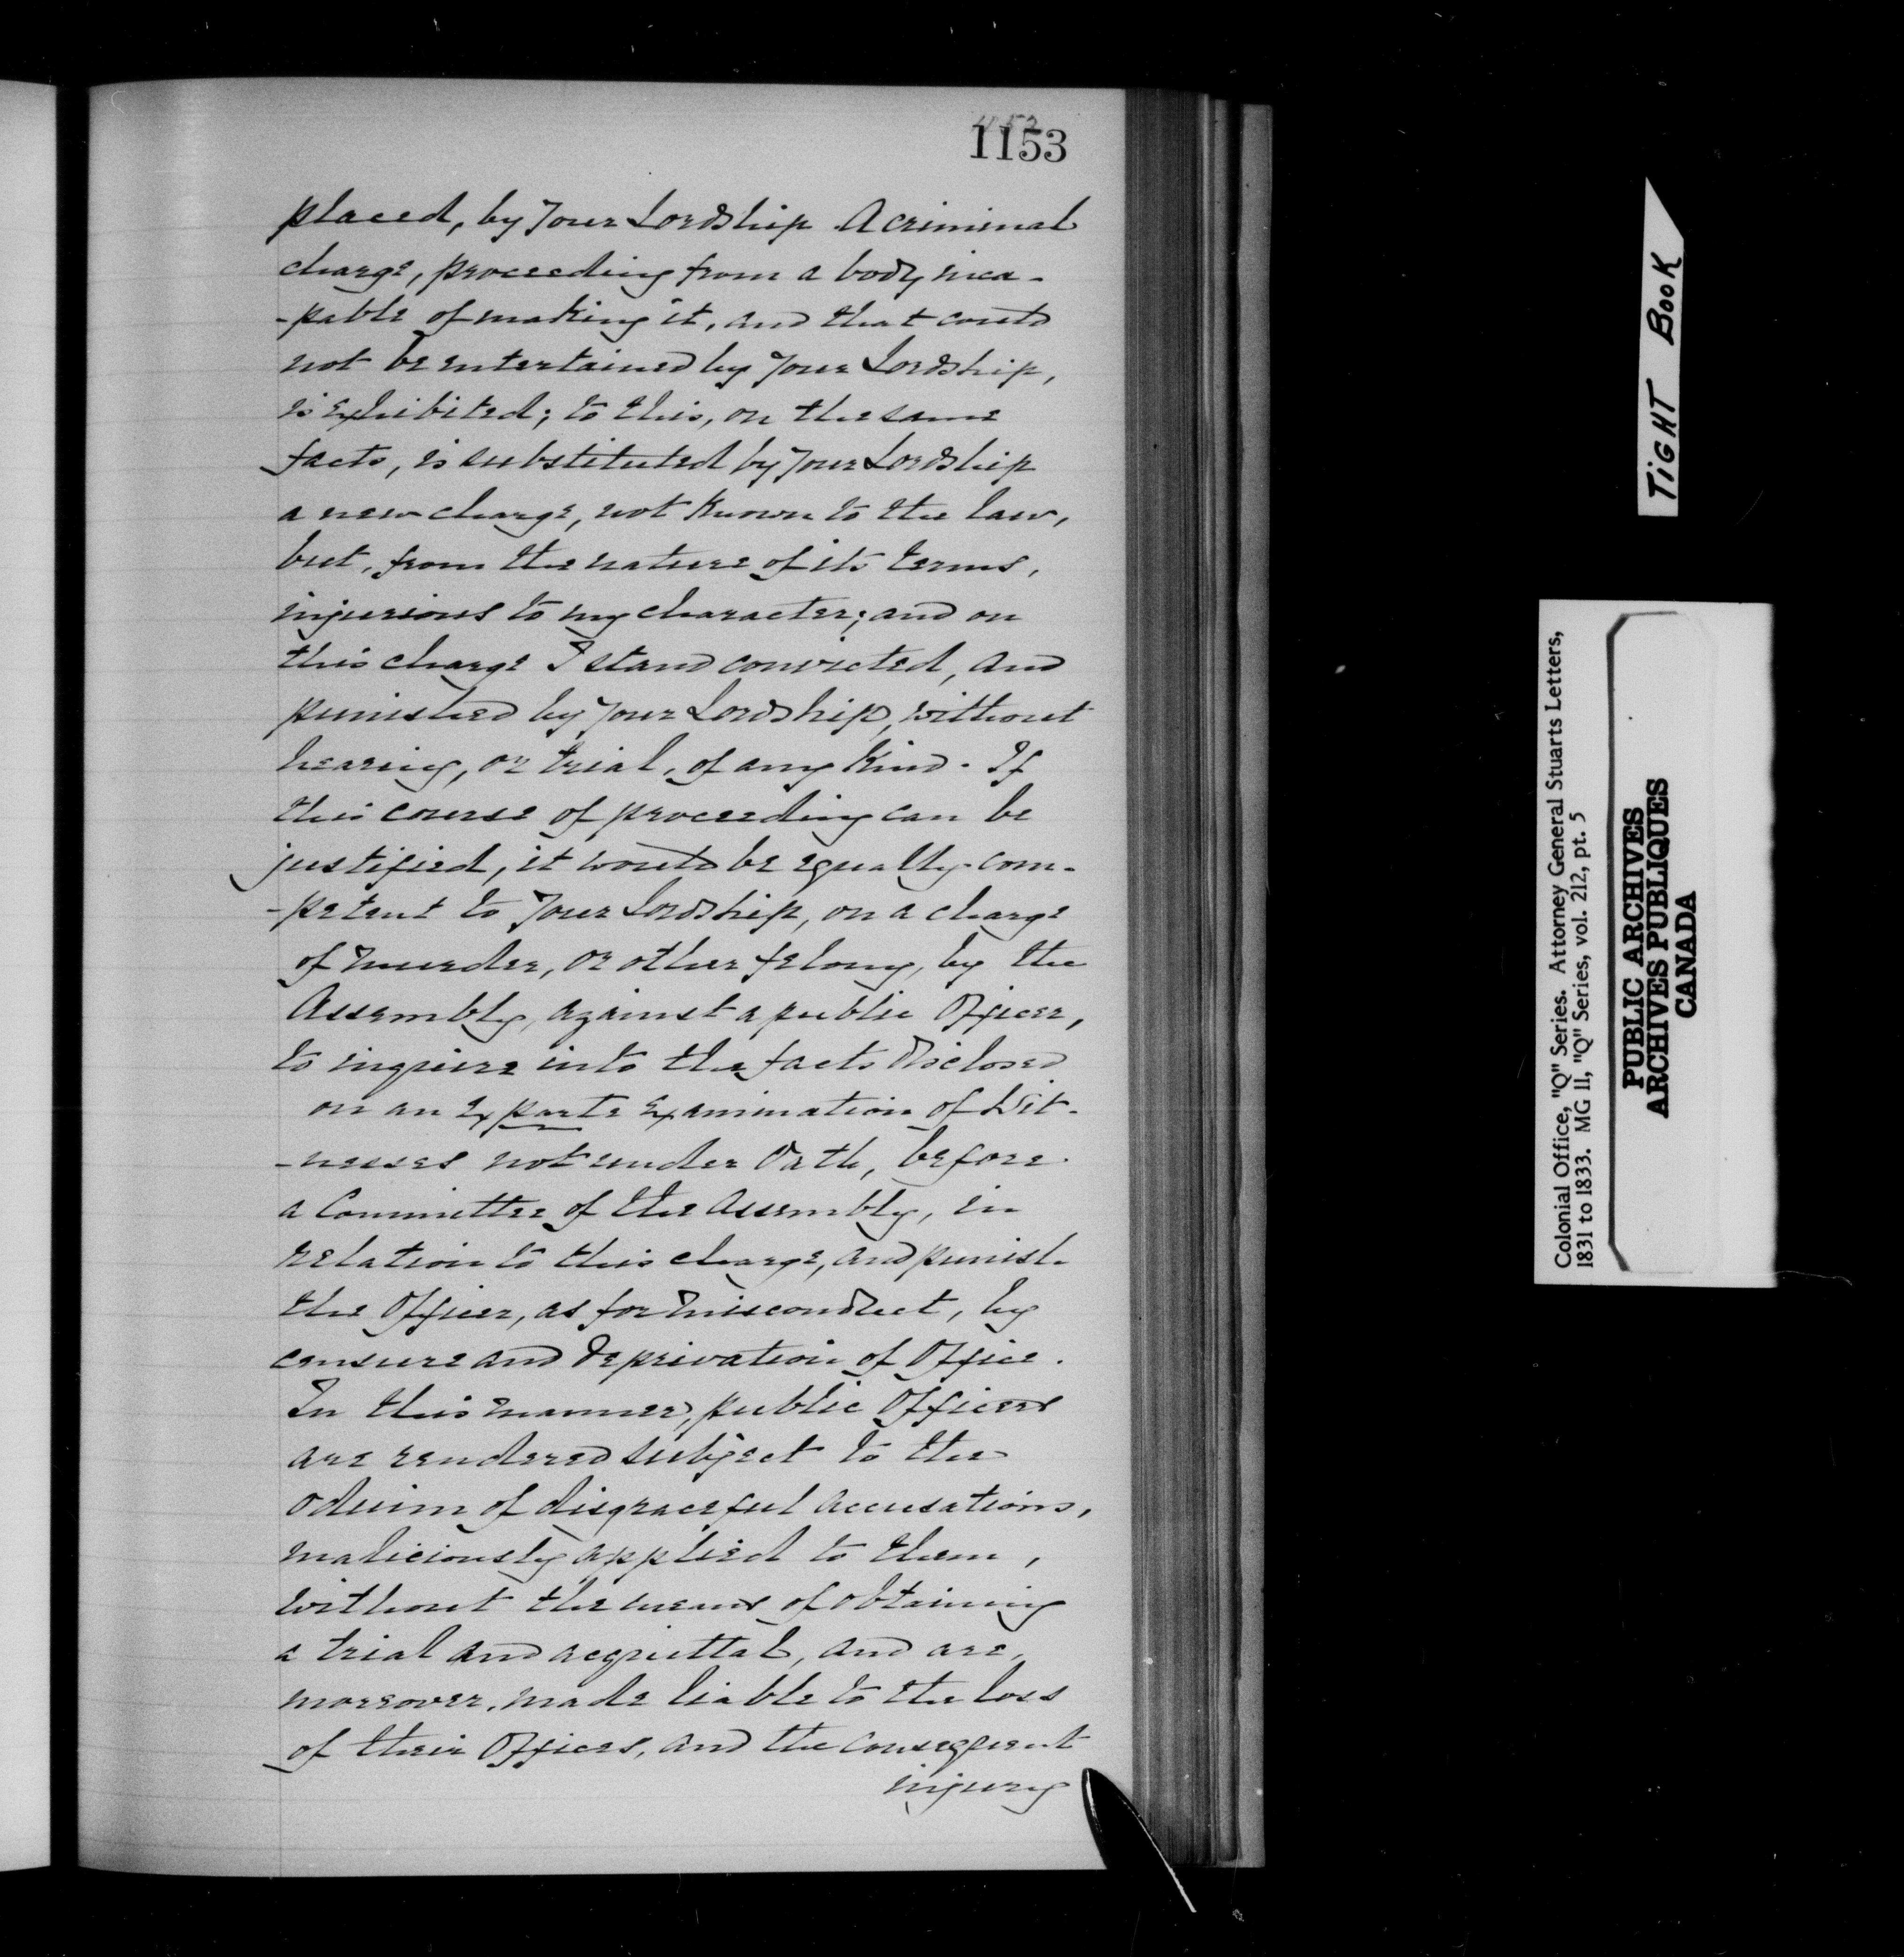 1153
placed, by Your Lordship. A criminal
charge, proceeding from a body inca-
-pable of making it, and that could
not be entertained by Your Lordship,
is exhibited; to this, on the same
facts, is substituted by Your Lordship
a new charge, not known to the law,
but, from the nature of its terms,
injurious to my character; and on
this charge I stand convicted, and
punished by Your Lordship, without
hearing, or trial, of any kind. If
this course of proceeding can be
justified, it would be equally com-
-petent to Your Lordship, on a charge
of Murder, or other felony, by the
Assembly, against a public Officer,
to inquire into the facts disclosed
on an ex parte examination of Wit-
-nesses not under Oath, before
a Committee of the Assembly, in
relation to this charge, and punish
the Officer, as for Misconduct, by
censure and deprivation of Office.
In this manner, public Officers
are rendered subject to the
odium of disgraceful accusations,
maliciously applied to them,
without the means of obtaining
a trial and acquittal, and are,
moreover, made liable to the loss
of their Offices, and the consequent
injury
TIGHT BOOK
Colonial Office, "Q" Series. Attorney General Stuarts Letters,
1831 to 1833. MG 11, "Q" Series, vol. 212, pt. 5
PUBLIC ARCHIVES
ARCHIVES PUBLIQUES
CANADA